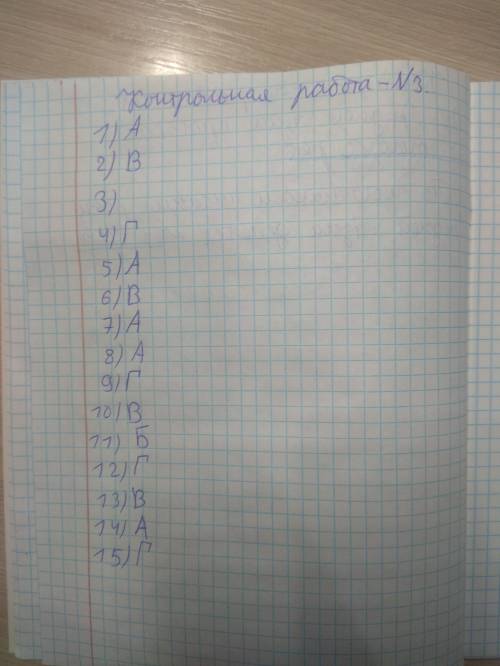 Контрольная работа-N3.
1) А
2) В
3)
4) Г
5) А
6) В
7) А
8) А
9) Г
10) В
11) Б
12) Г
13) В
14) А
15) Г